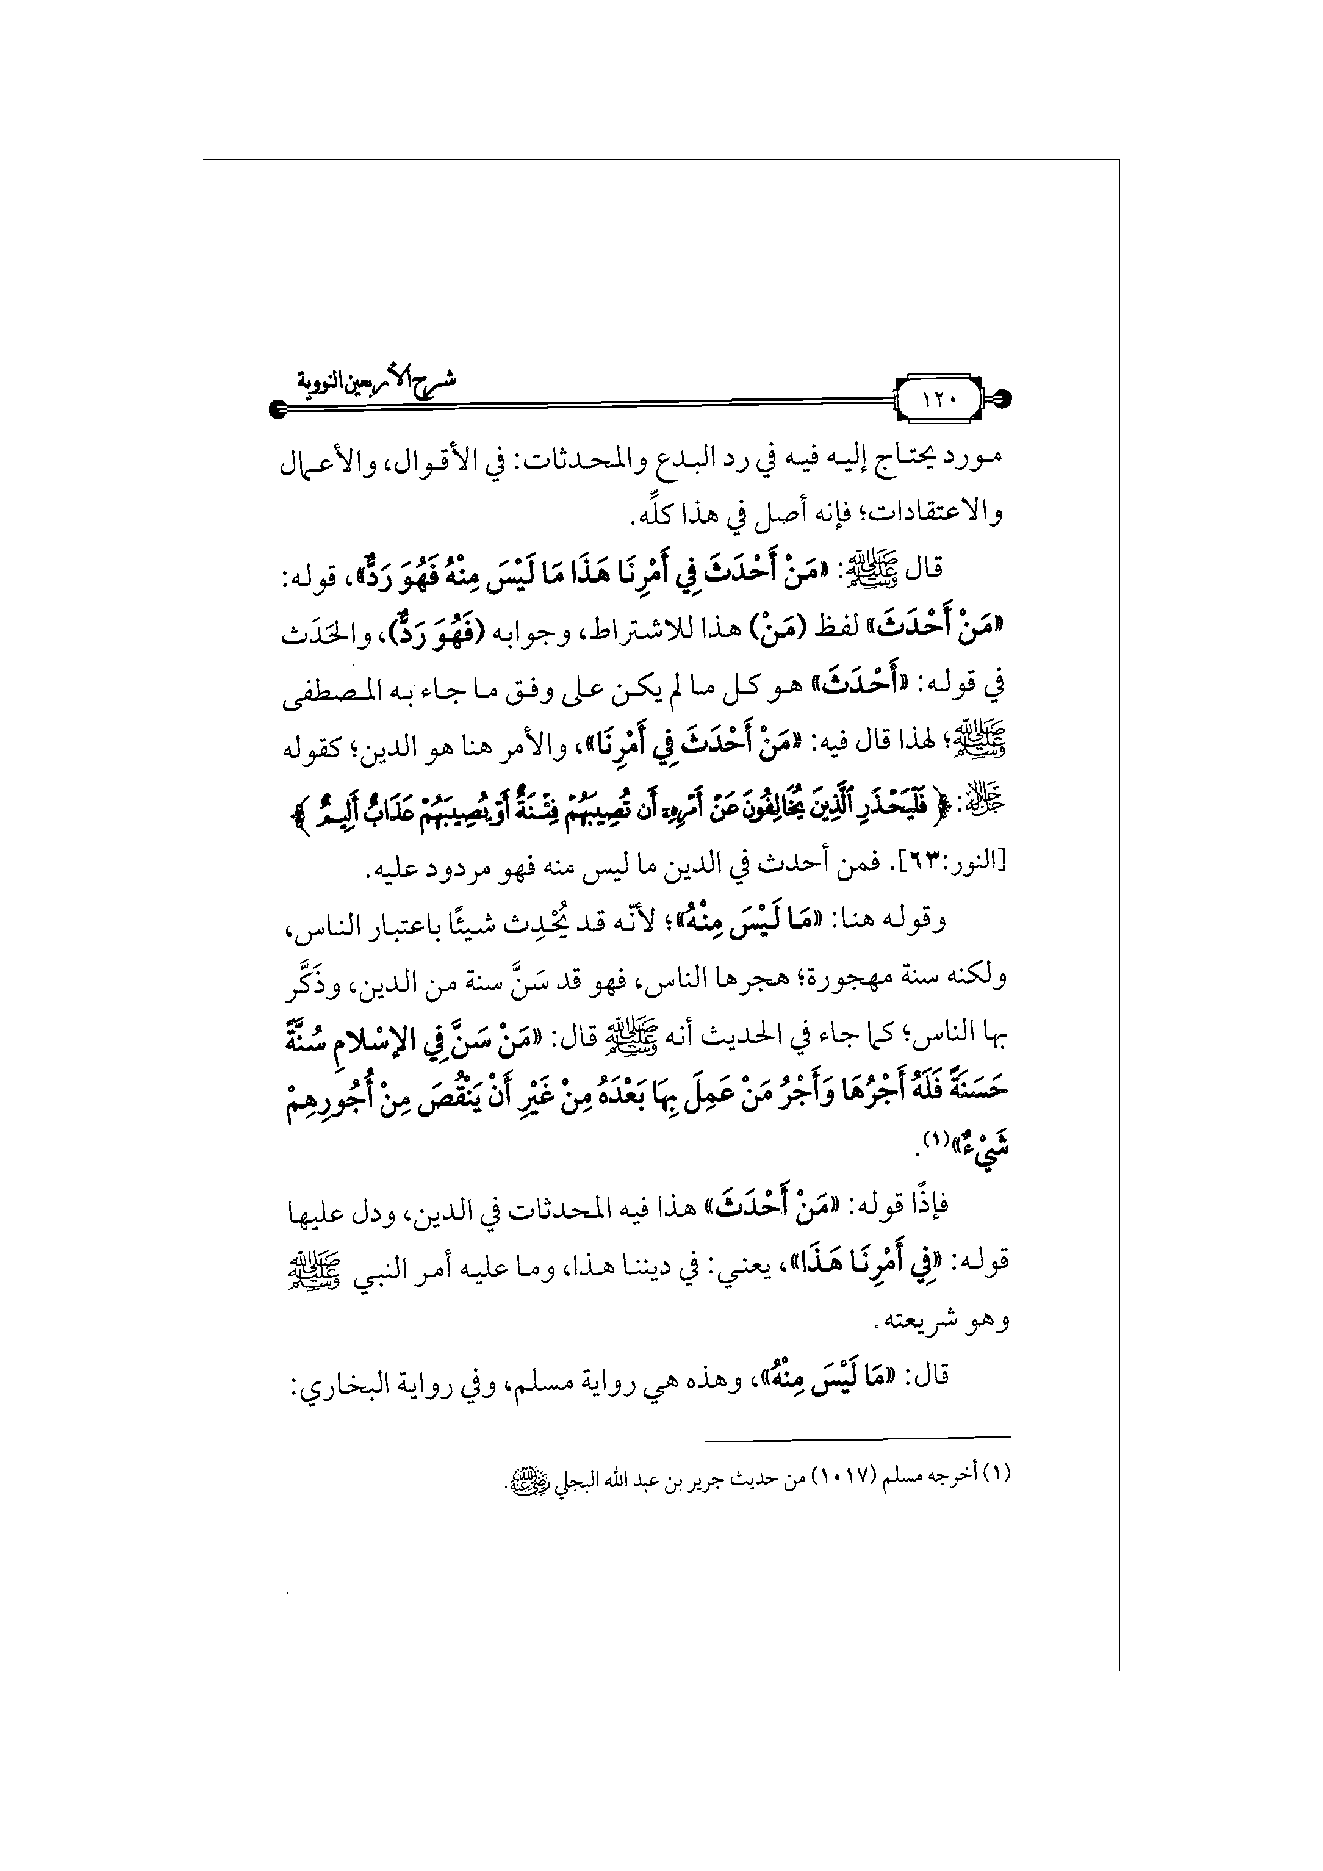 شرح الأربعين النووية
١٢٠
مورد يحتاج إليه فيه في رد البدع والمحدثات: في الأقوال، والأعمال
والاعتقادات؛ فإنه أصل في هذا كلَّه.
قال ﷺ: «مَنْ أَحْدَثَ فِي أَمْرِنَا هَذَا مَا لَيْسَ مِنْهُ فَهُوَ رَدٌّ»، قوله:
«مَنْ أَحْدَثَ» لفظ (مَنْ) هذا للاشتراط، وجوابه (فَهُوَ رَدٌّ)، والحَدَث
في قوله: «أَحْدَثَ» هو كل ما لم يكن على وفق ما جاء به المصطفى
ﷺ؛ لهذا قال فيه: «مَنْ أَحْدَثَ فِي أَمْرِنَا»، والأمر هنا هو الدين؛ كقوله
ﷻ: ﴿فَلْيَحْذَرِ ٱلَّذِينَ يُخَالِفُونَ عَنْ أَمْرِهِۦٓ أَن تُصِيبَهُمْ فِتْنَةٌ أَوْ يُصِيبَهُمْ عَذَابٌ أَلِيمٌ﴾
[النور:٦٣]. فمن أحدث في الدين ما ليس منه فهو مردود عليه.
وقوله هنا: «مَا لَيْسَ مِنْهُ»؛ لأنّه قد يُحْدِث شيئًا باعتبار الناس،
ولكنه سنة مهجورة؛ هجرها الناس، فهو قد سَنَّ سنة من الدين، وذَكَّر
بها الناس؛ كما جاء في الحديث أنه ﷺ قال: «مَنْ سَنَّ فِي الإِسْلامِ سُنَّةً
حَسَنَةً فَلَهُ أَجْرُهَا وَأَجْرُ مَنْ عَمِلَ بِهَا بَعْدَهُ مِنْ غَيْرِ أَنْ يَنْقُصَ مِنْ أُجُورِهِمْ
شَيْءٌ»(١).
فإذًا قوله: «مَنْ أَحْدَثَ» هذا فيه المحدثات في الدين، ودل عليها
قوله: «فِي أَمْرِنَا هَذَا»، يعني: في ديننا هذا، وما عليه أمر النبي ﷺ
وهو شريعته.
قال: «مَا لَيْسَ مِنْهُ»، وهذه هي رواية مسلم، وفي رواية البخاري:
(١) أخرجه مسلم (١٠١٧) من حديث جرير بن عبد الله البجلي رضي الله عنه.